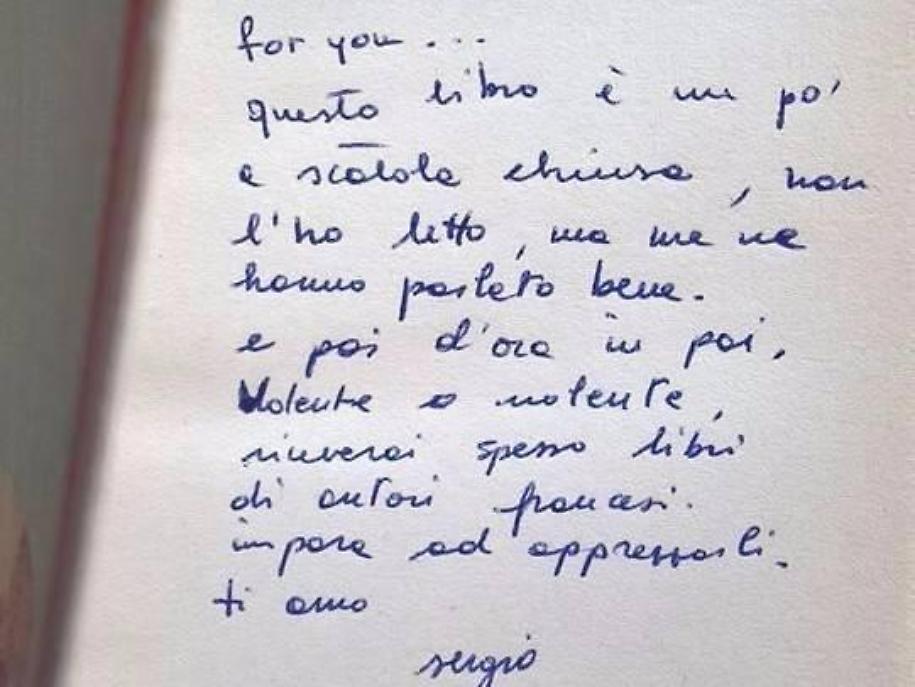 for you...
questo libro è un po'
a scatola chiusa, non
l'ho letto, ma me ne
hanno parlato bene.
e poi d'ora in poi,
Volente o nolente,
riceverai spesso libri
di autori francesi.
impara ad apprezzarli.
ti amo
sergio